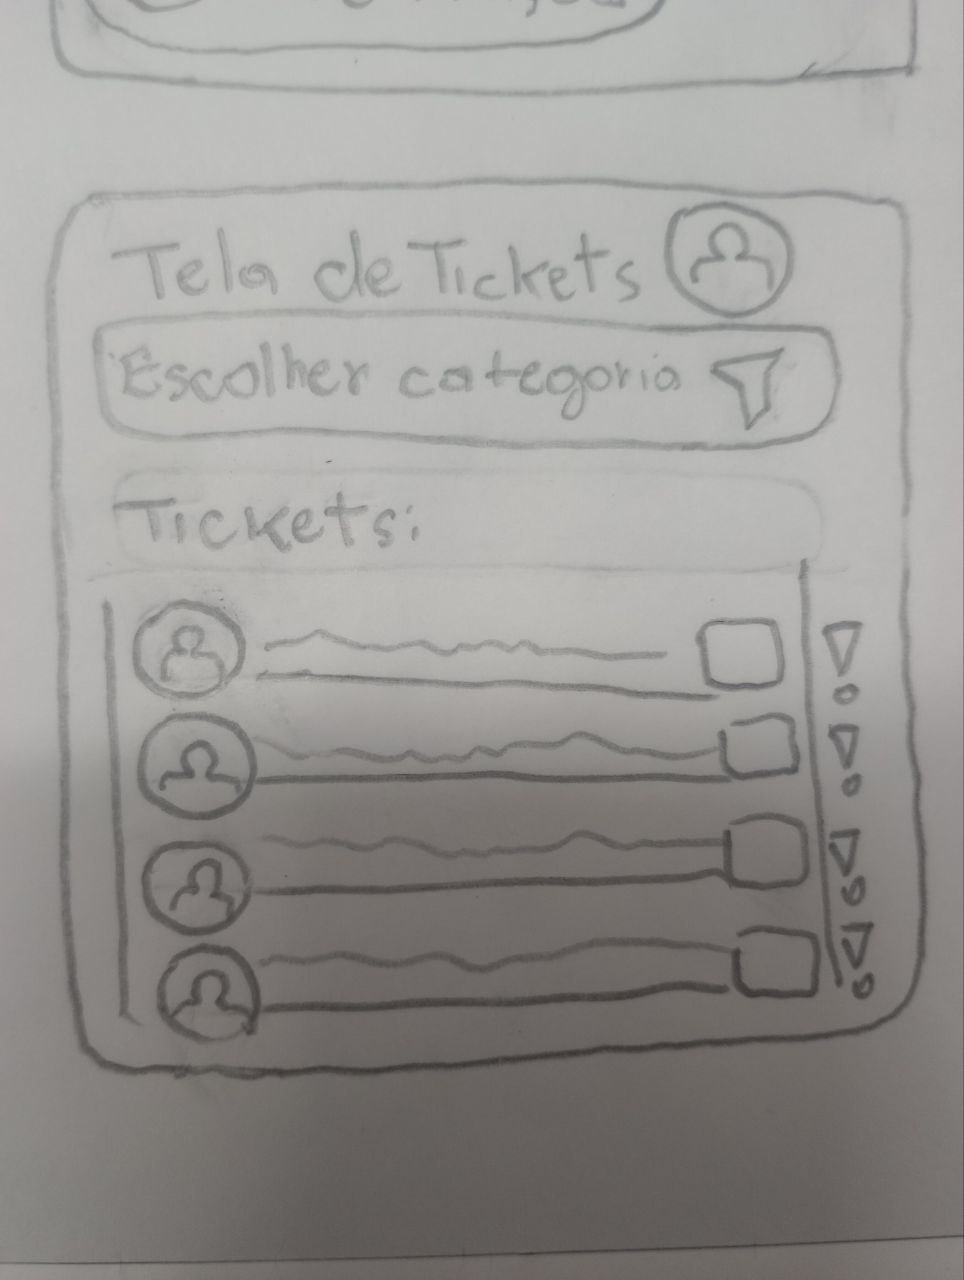 Tela de Tickets
Escolher categoria
Tickets: